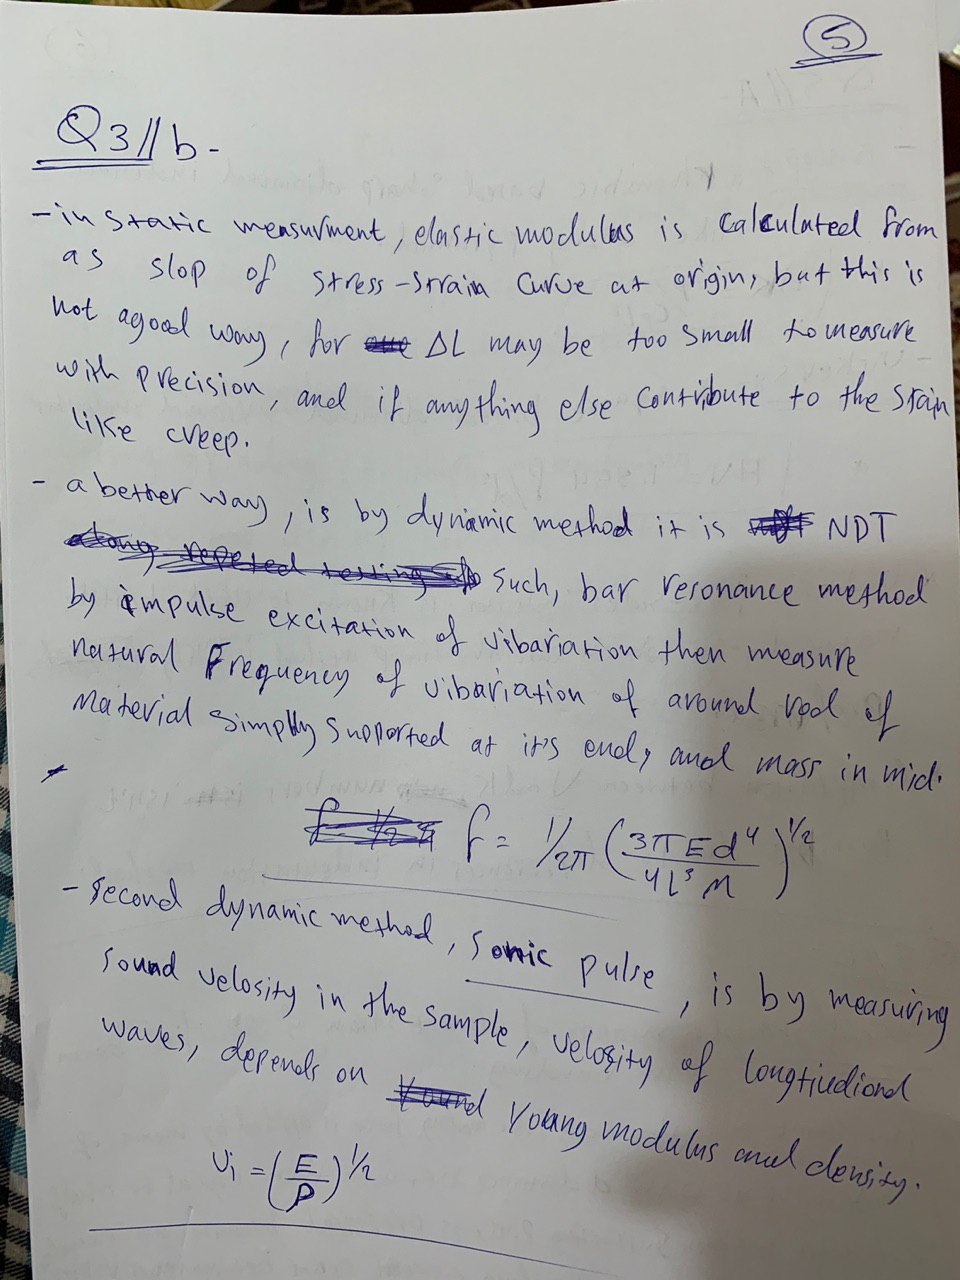 5
Q3//b-
- in static measurment, elastic modulus is calculated from
as slop of stress-strain curve at origin, but this is
not a good way, for ΔL may be too small to measure
with precision, and if anything else contribute to the strain
like creep.
- a better way, is by dynamic method it is NDT
along repeted testing such, bar resonance method
by impulse excitation of vibariation then measure
natural Frequency of vibariation of around rod of
material simply supported at it's end, and mass in mid.
f = 1/2π (3πEd⁴/4L³M)^1/2
- second dynamic method, sonic pulse, is by measuring
sound velosity in the sample, velosity of longtiudional
waves, depends on Young modulus and density.
υi = (E/ρ)^1/2